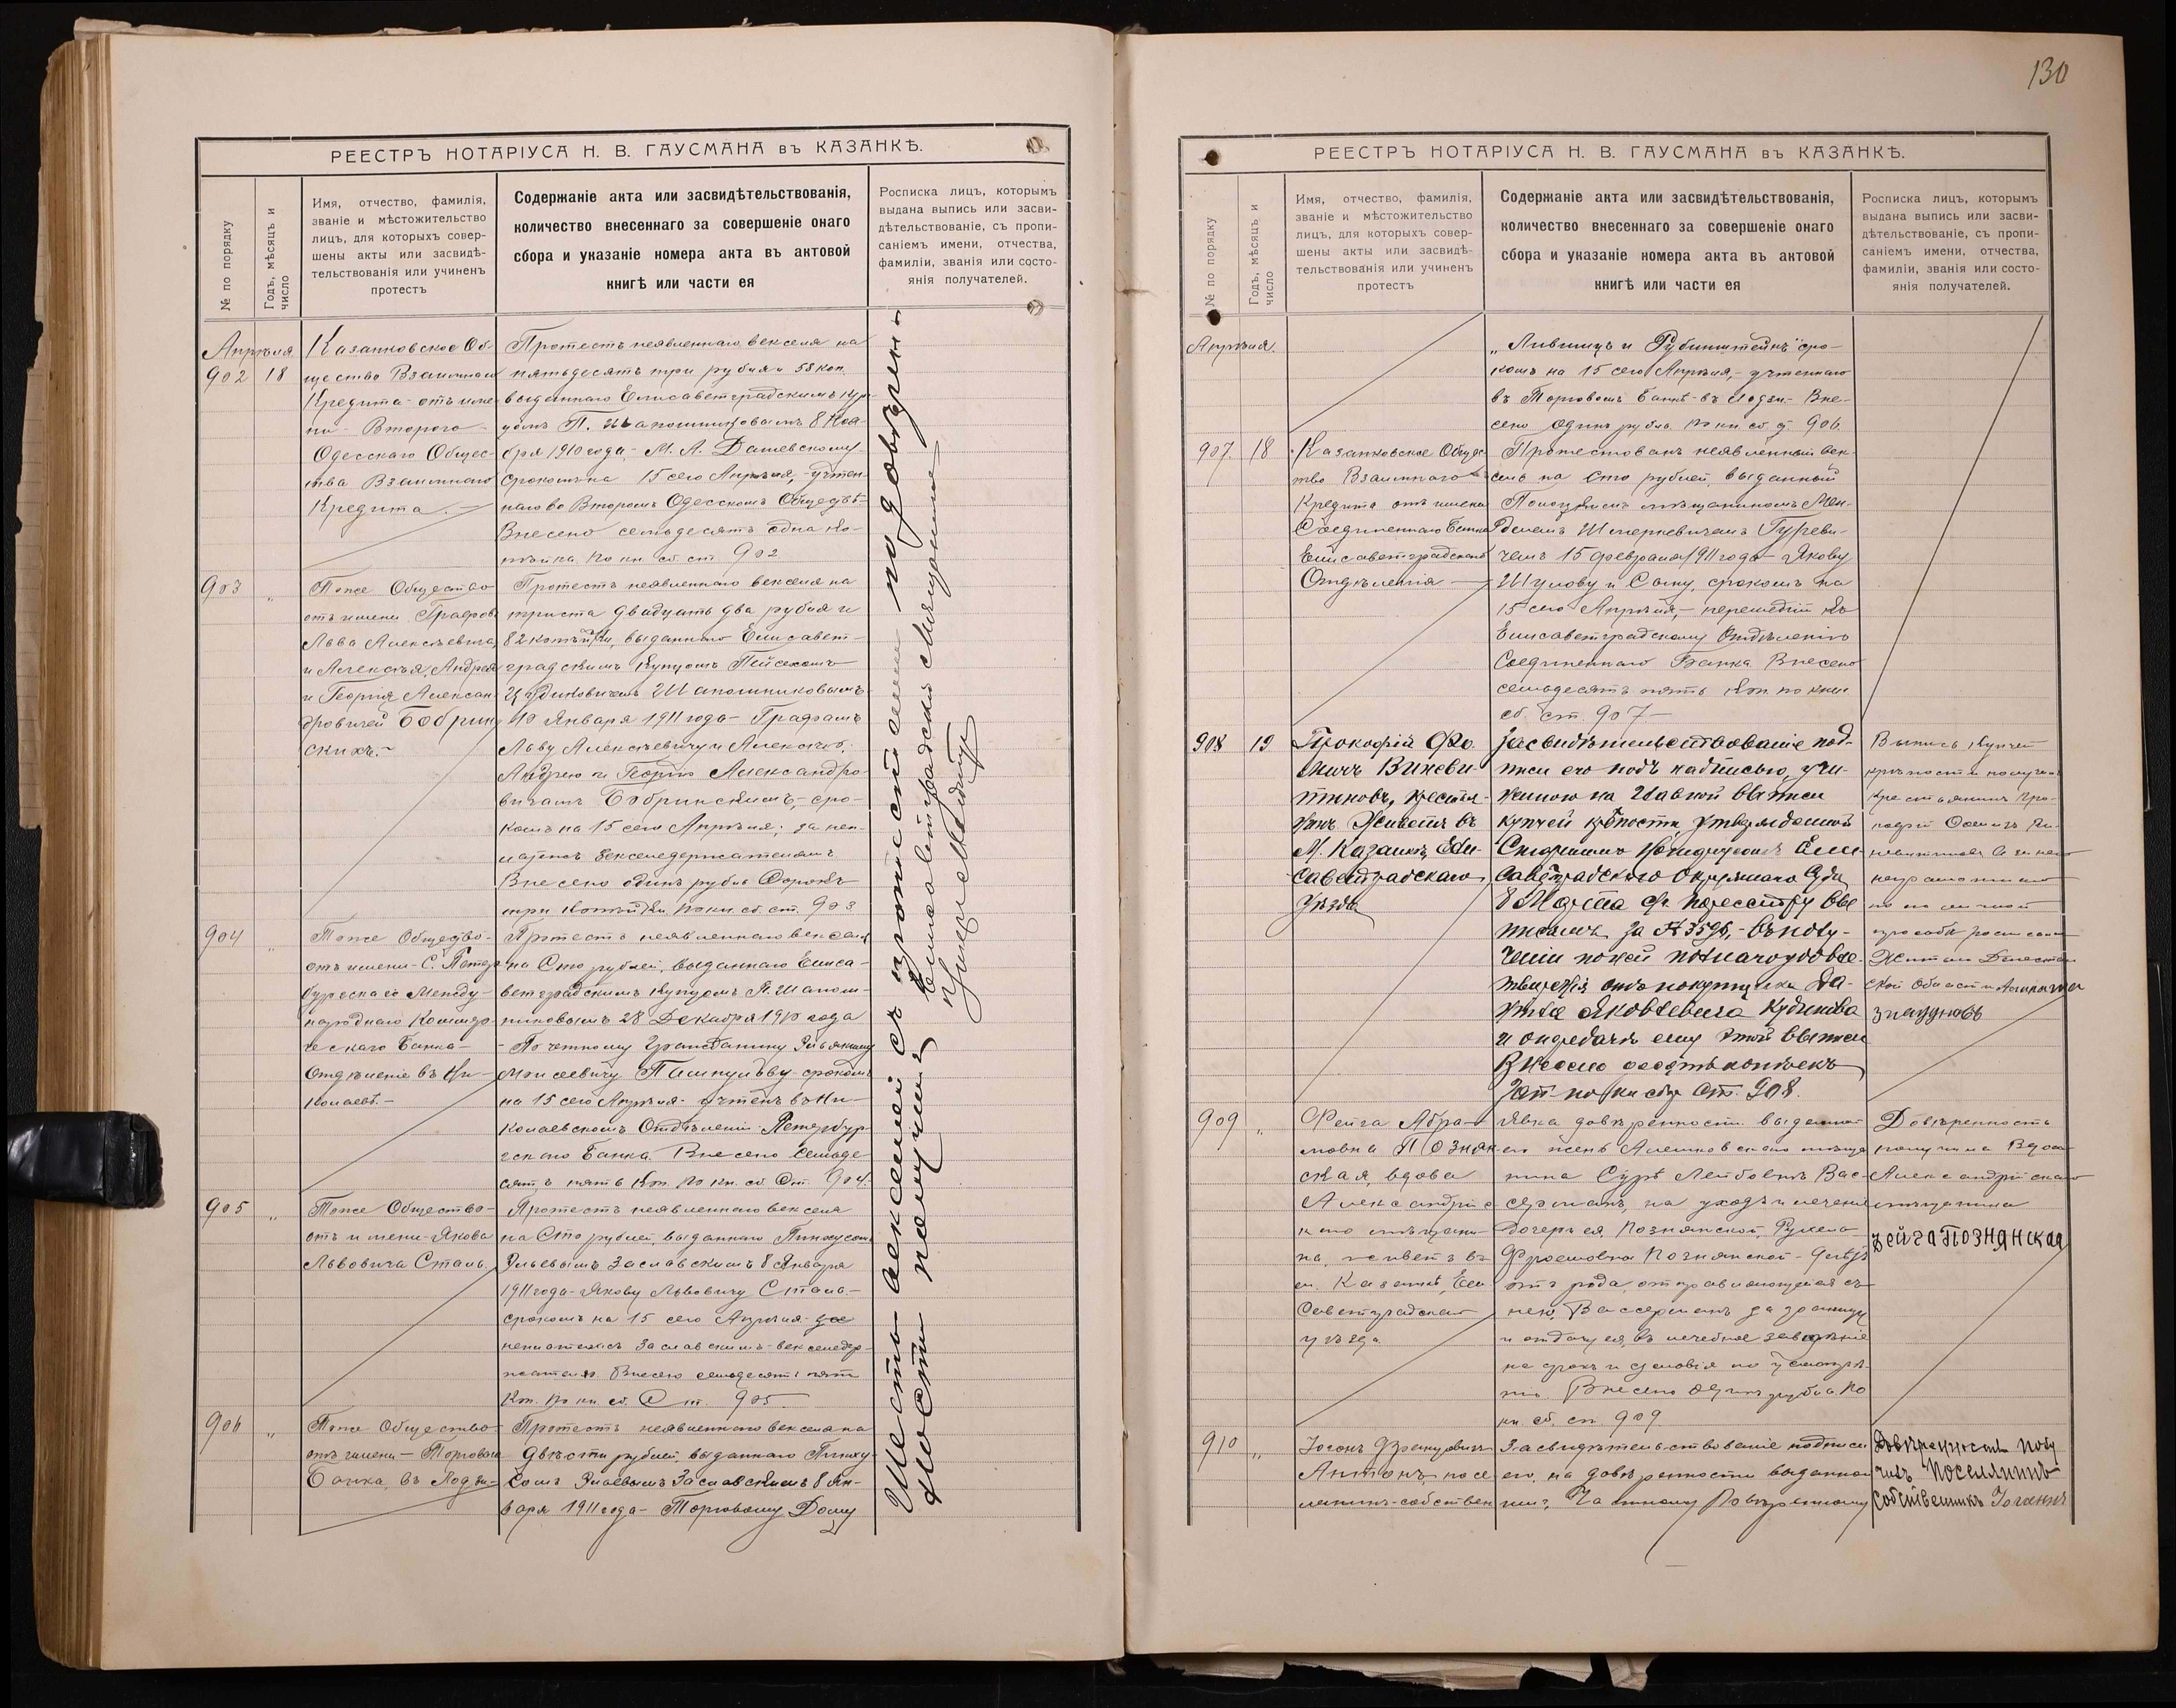 130
РЕЕСТРЪ НОТАРІУСА Н. В. ГАУСМАНА въ КАЗАНКѢ.
№ по порядку
Годъ, мѣсяцъ и
число
Имя, отчество, фамилія,
званіе и мѣстожительство
лицъ, для которыхъ совер-
шены акты или засвидѣ-
тельствованія или учиненъ
протестъ
Содержаніе акта или засвидѣтельствованія,
количество внесеннаго за совершеніе онаго
сбора и указаніе номера акта въ актовой
книгѣ или части ея
Росписка лицъ, которымъ
выдана выпись или засви-
дѣтельствованіе, съ пропи-
саніемъ имени, отчества,
фамиліи, званія или состо-
янія получателей.
Апрѣля
902 18
Казанковское Об-
щество Взаимнаго
Кредита - отъ име-
ни - Второго
Одесскаго Общес-
тва Взаимнаго
Кредита. -
Протестъ неявленнаго векселя на
пятьдесятъ три рубля и 58 коп.
выданнаго Елисаветградскимъ куп-
цомъ П. Шапошниковымъ 8 Ноя-
бря 1910 года - М. А. Дашевскому
срокомъ на 15 сего Апрѣля, - учтен-
наго во Второмъ Одесскомъ Обществѣ -
Внесено семьдесятъ одна ко-
пѣйка. По кн. сб. ст. 902
903 "
Тоже Общество
отъ имени Графовъ
Льва Алексѣевича,
и Алексѣя, Андрея
и Георгія Алексан
дровичей Бобрин
скихъ. -
Протестъ неявленнаго векселя на
триста двадцать два рубля и
82 копѣйки, выданнаго Елисавет-
градскимъ купцомъ Пейсахомъ
Шапошниковымъ
10 Января 1911 года - Графамъ
Льву Алексѣевичу и Алексѣю,
Андрею и Георгію Александро
вичамъ Бобринскимъ, - сро-
комъ на 15 сего Апрѣля; за неп-
латежъ векселедержателямъ
Внесено одинъ рубль сорокъ
три копѣйки. По кн. сб. ст. 903
904 "
Тоже Общество -
отъ имени - С. Петер
бургскаго Между-
народнаго Коммер
ческаго Банка -
Отдѣленіе въ Ни-
колаевѣ. -
Протестъ неявленнаго векселя
на Сто рублей, выданнаго Елиса-
ветградскимъ купцомъ П. Шапош-
никовымъ 28 Декабря 1910 года
- Почетному Гражданину
Моисеевичу срокомъ
на 15 сего Апрѣля - учтенъ въ Ни-
колаевскомъ Отдѣленіи Петербур-
гскаго Банка. Внесено семьде
сятъ пять коп. По кн. сб. ст. 904.
905 "
Тоже Общество -
отъ имени - Якова
Львовича Сталь.
Протестъ неявленнаго векселя
на Сто рублей, выданнаго Пинхусомъ
Заславскимъ 8 Января
1911 года - Якову Львовичу Сталь -
срокомъ на 15 сего Апрѣля - за
неплатежъ Заславскимъ - векселедер-
жателя. Внесено семьдесятъ пять
Коп. По кн. сб. Ст. 905
906 "
Тоже Общество -
отъ имени - Торгового
Банка въ Лодзи -
Протестъ неявленнаго векселя на
двѣсти рублей, выданнаго Пинху-
сомъ Заславскимъ 8 Ян-
варя 1911 года - Торговому Дому
Шесть векселей съ протестами по довѣрен-
ности получилъ Елисаветградскій
РЕЕСТРЪ НОТАРІУСА Н. В. ГАУСМАНА въ КАЗАНКѢ.
№ по порядку
Годъ, мѣсяцъ и
число
Имя, отчество, фамилія,
званіе и мѣстожительство
лицъ, для которыхъ совер-
шены акты или засвидѣ-
тельствованія или учиненъ
протестъ
Содержаніе акта или засвидѣтельствованія,
количество внесеннаго за совершеніе онаго
сбора и указаніе номера акта въ актовой
книгѣ или части ея
Росписка лицъ, которымъ
выдана выпись или засви-
дѣтельствованіе, съ пропи-
саніемъ имени, отчества,
фамиліи, званія или состо-
янія получателей.
Апрѣля.
„Лившицъ и Рубинштейнъ" сро-
комъ на 15 сего Апрѣля, - учтеннаго
въ Торговомъ Банкѣ - въ Лодзи, - Вне-
сено одинъ рубль. По кн. сб. ст. 906.
907. 18
Казанковское Общес
тво Взаимнаго
Кредита отъ имени
Соединеннаго Банка
Елисаветградскаго
Отдѣленія -
Протестованъ неявленный век-
сель на сто рублей, выданный
мѣщаниномъ Мен-
делемъ Гуреви-
чемъ 15 февраля 1911 года - Якову
Шулову и Сыну, срокомъ на
15 сего Апрѣля, - перешедшій къ
Елисаветградскому Отдѣленію
Соединеннаго Банка. Внесено
семьдесятъ пять коп. по книг.
сб. ст. 907 -
908 19
Прокофій Фо-
мичъ Виневи-
тиновъ, крестья-
нинъ. Живетъ въ
м. Казанкѣ, Ели-
саветградскаго
уѣзда
Засвидѣтельствованіе под-
писи его подъ надписью, учи-
ненною на главной выписи
купчей крѣпости, утвержденной
Старшимъ Нотаріусомъ Ели-
саветградскаго Окружнаго Суда
8 Марта с.г. по реестру
въ полу-
ченіи по ней полнаго удовле-
творенія отъ покупщика Да-
Яковлевича
и о передачѣ ему этой выписи
Внесено десять копѣекъ
Зап. по кн. сбор. ст. 908.
Выпись купчей
крѣпости получилъ
крестьянинъ Про-
кофій Фомичъ Ви-
невитиновъ, а за него
неграмотнаго
по личной
просьбѣ росписался
Житель Дагестан
ской области
909 "
Фейга Абра-
мовна Познян
ская, вдова
Александрійс
каго мѣщани-
на, живетъ въ
м. Казанкѣ, Ели
саветградскаго
уѣзда
Явка довѣренности выданной
ею женѣ Алешковскаго мѣща
нина Сурѣ Лейбовнѣ Вас-
серманъ, на уходъ и леченіе
дочери ея, Познянской,
Фроимовны Познянской -
отъ рода, отправляющейся съ
нею, Вассерманъ за границу
и отдачу ея въ лечебное заведеніе
на срокъ и условія по усмотрѣ-
нію. Внесено одинъ рубль. По
кн. сб. ст. 909
Довѣренность
получила Вдова
Александрійскаго
мѣщанина
Фейга Познянская
910 "
Антонъ, посе-
лянинъ-собствен
Засвидѣтельствованіе подписи
его, на довѣренности выданной
имъ, Частному Повѣренному
Довѣренность полу
чилъ Поселянинъ
Собственникъ Іоганнъ